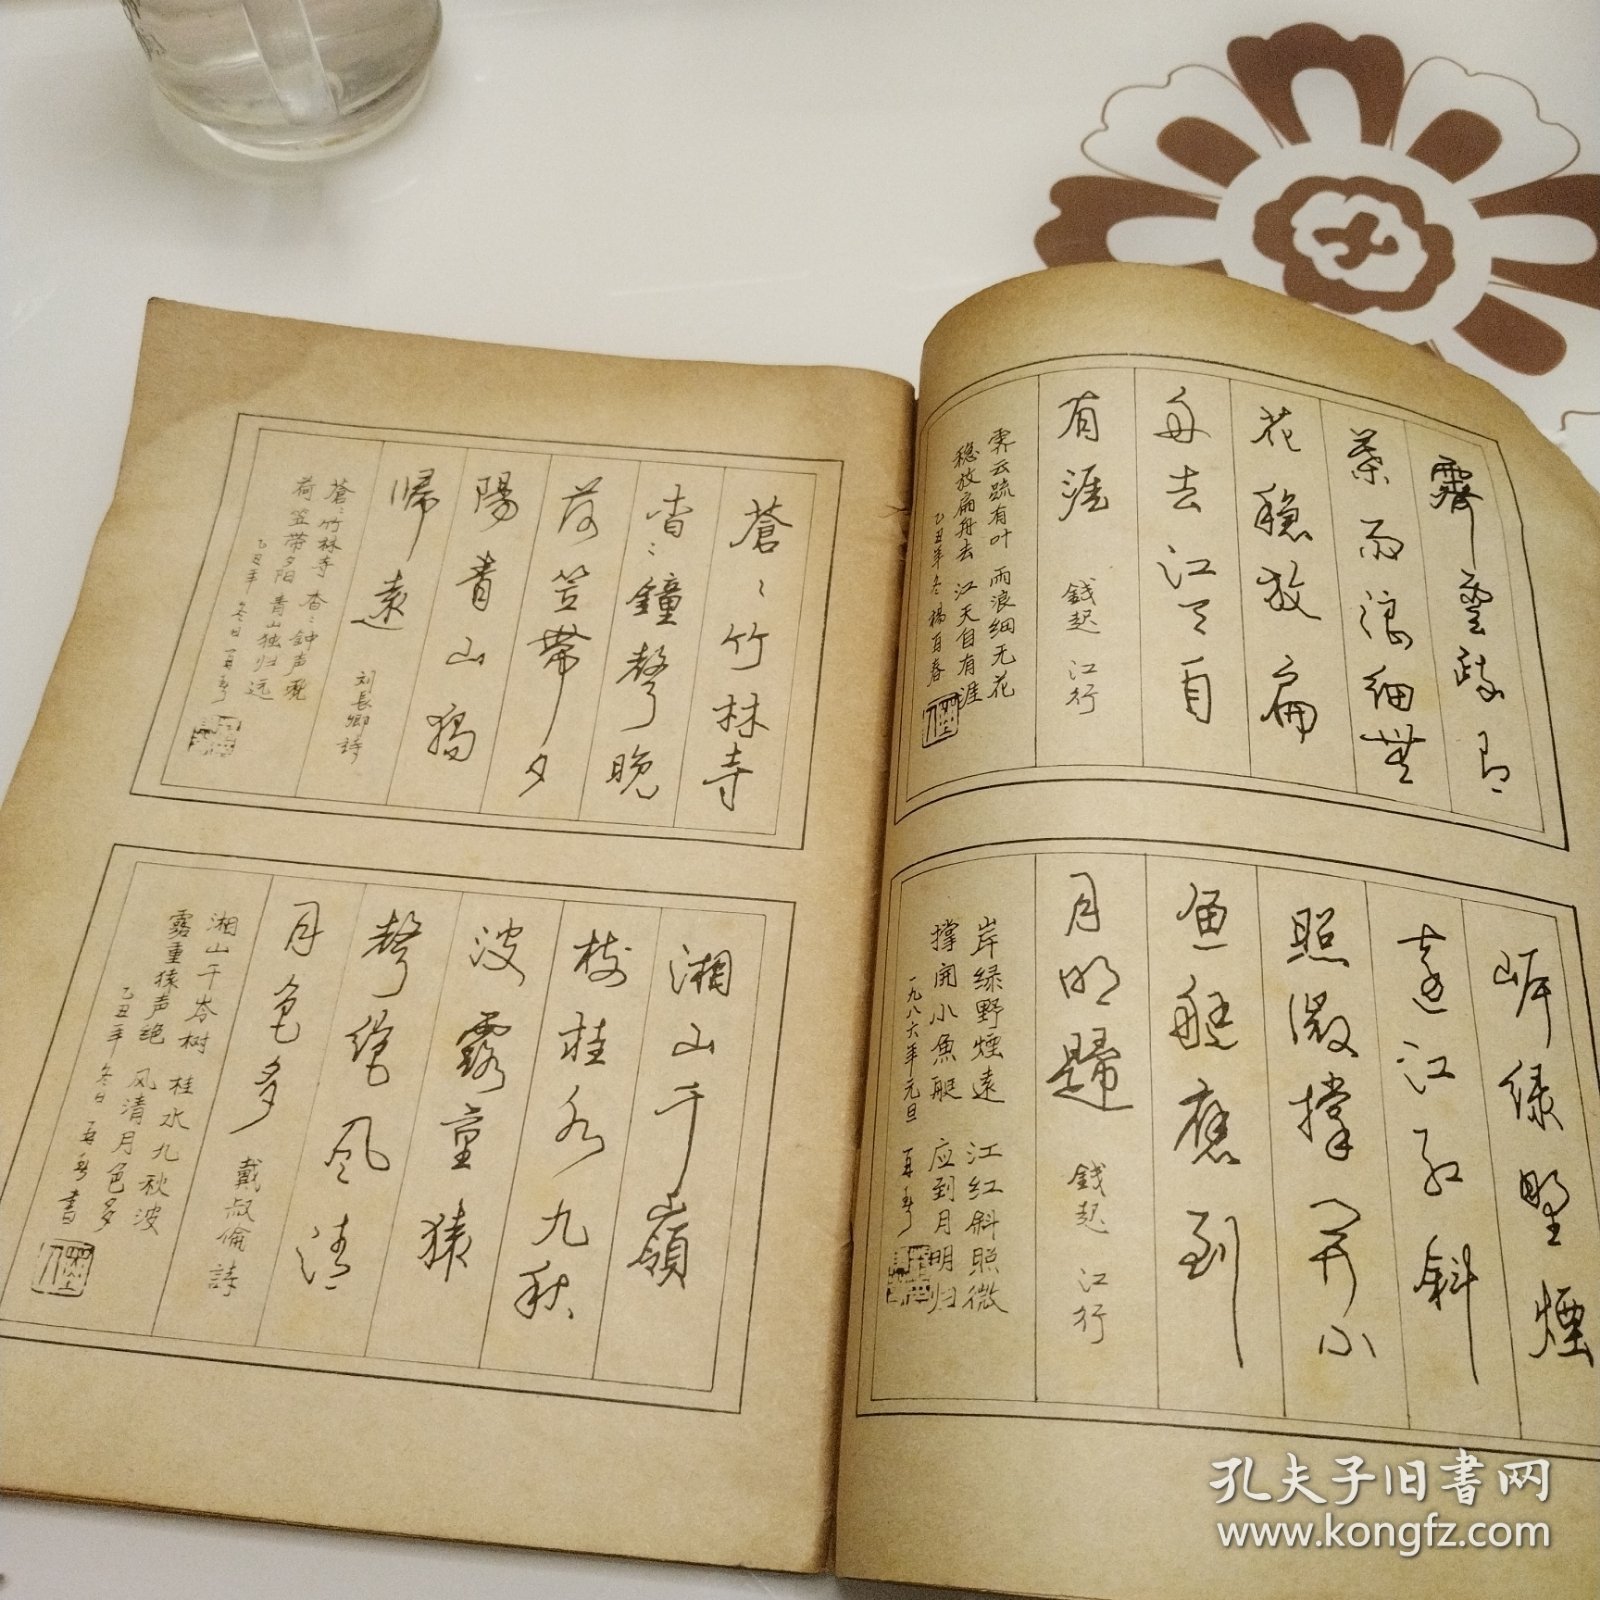 霽雲疏有
葉雨浪細無
花穩放扁
舟去江天自
有涯 錢起 江行
霁云疏有叶 雨浪细无花
稳放扁舟去 江天自有涯
乙丑年冬 杨百春
岸绿野煙
遠江紅斜
照微撑開小
魚艇應到
月明歸 錢起 江行
岸绿野煙遠 江红斜照微
撑開小魚艇 应到月明归
一九八六年元旦
蒼〻竹林寺
杳〻鐘聲晚
荷笠帶夕
陽青山獨
歸遠 刘長卿詩
蒼〻竹林寺 杳〻钟声晚
荷笠带夕阳 青山独归远
乙丑年 冬日
湘山千嶺
樹桂水九秋
波露重猿
聲絕風清
月色多 戴叔倫詩
湘山千岑树 桂水九秋波
露重猿声绝 风清月色多
乙丑年 冬日 書
孔夫子旧书网
www.kongfz.com